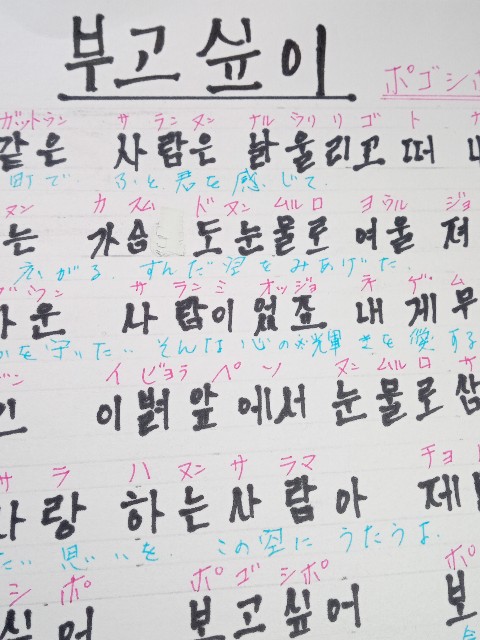 부고싶이
ポゴシポ
ガットゥン サランヌン ナルウリリゴト
같은 사람은 날울리고떠
町で ふと君を感じて
ヌン カスム ドヌンムルロ ヨウルジョ
는 가슴 도눈물로 여울져
広がる すんだ空をみあげた
ウン サランミ オッジョ ネゲム
운 사람이 있죠 내게무
を守りたい そんな心の輝きを
イビョラペソ ヌンムルロサ
이 뵭앞에서 눈물로삼
サラハヌンサラマ チョ
사랑 하는사람아 제
たい 思いを この空に うたうよ
シポ ポゴシポ ポ
싶어 보고싶어 보